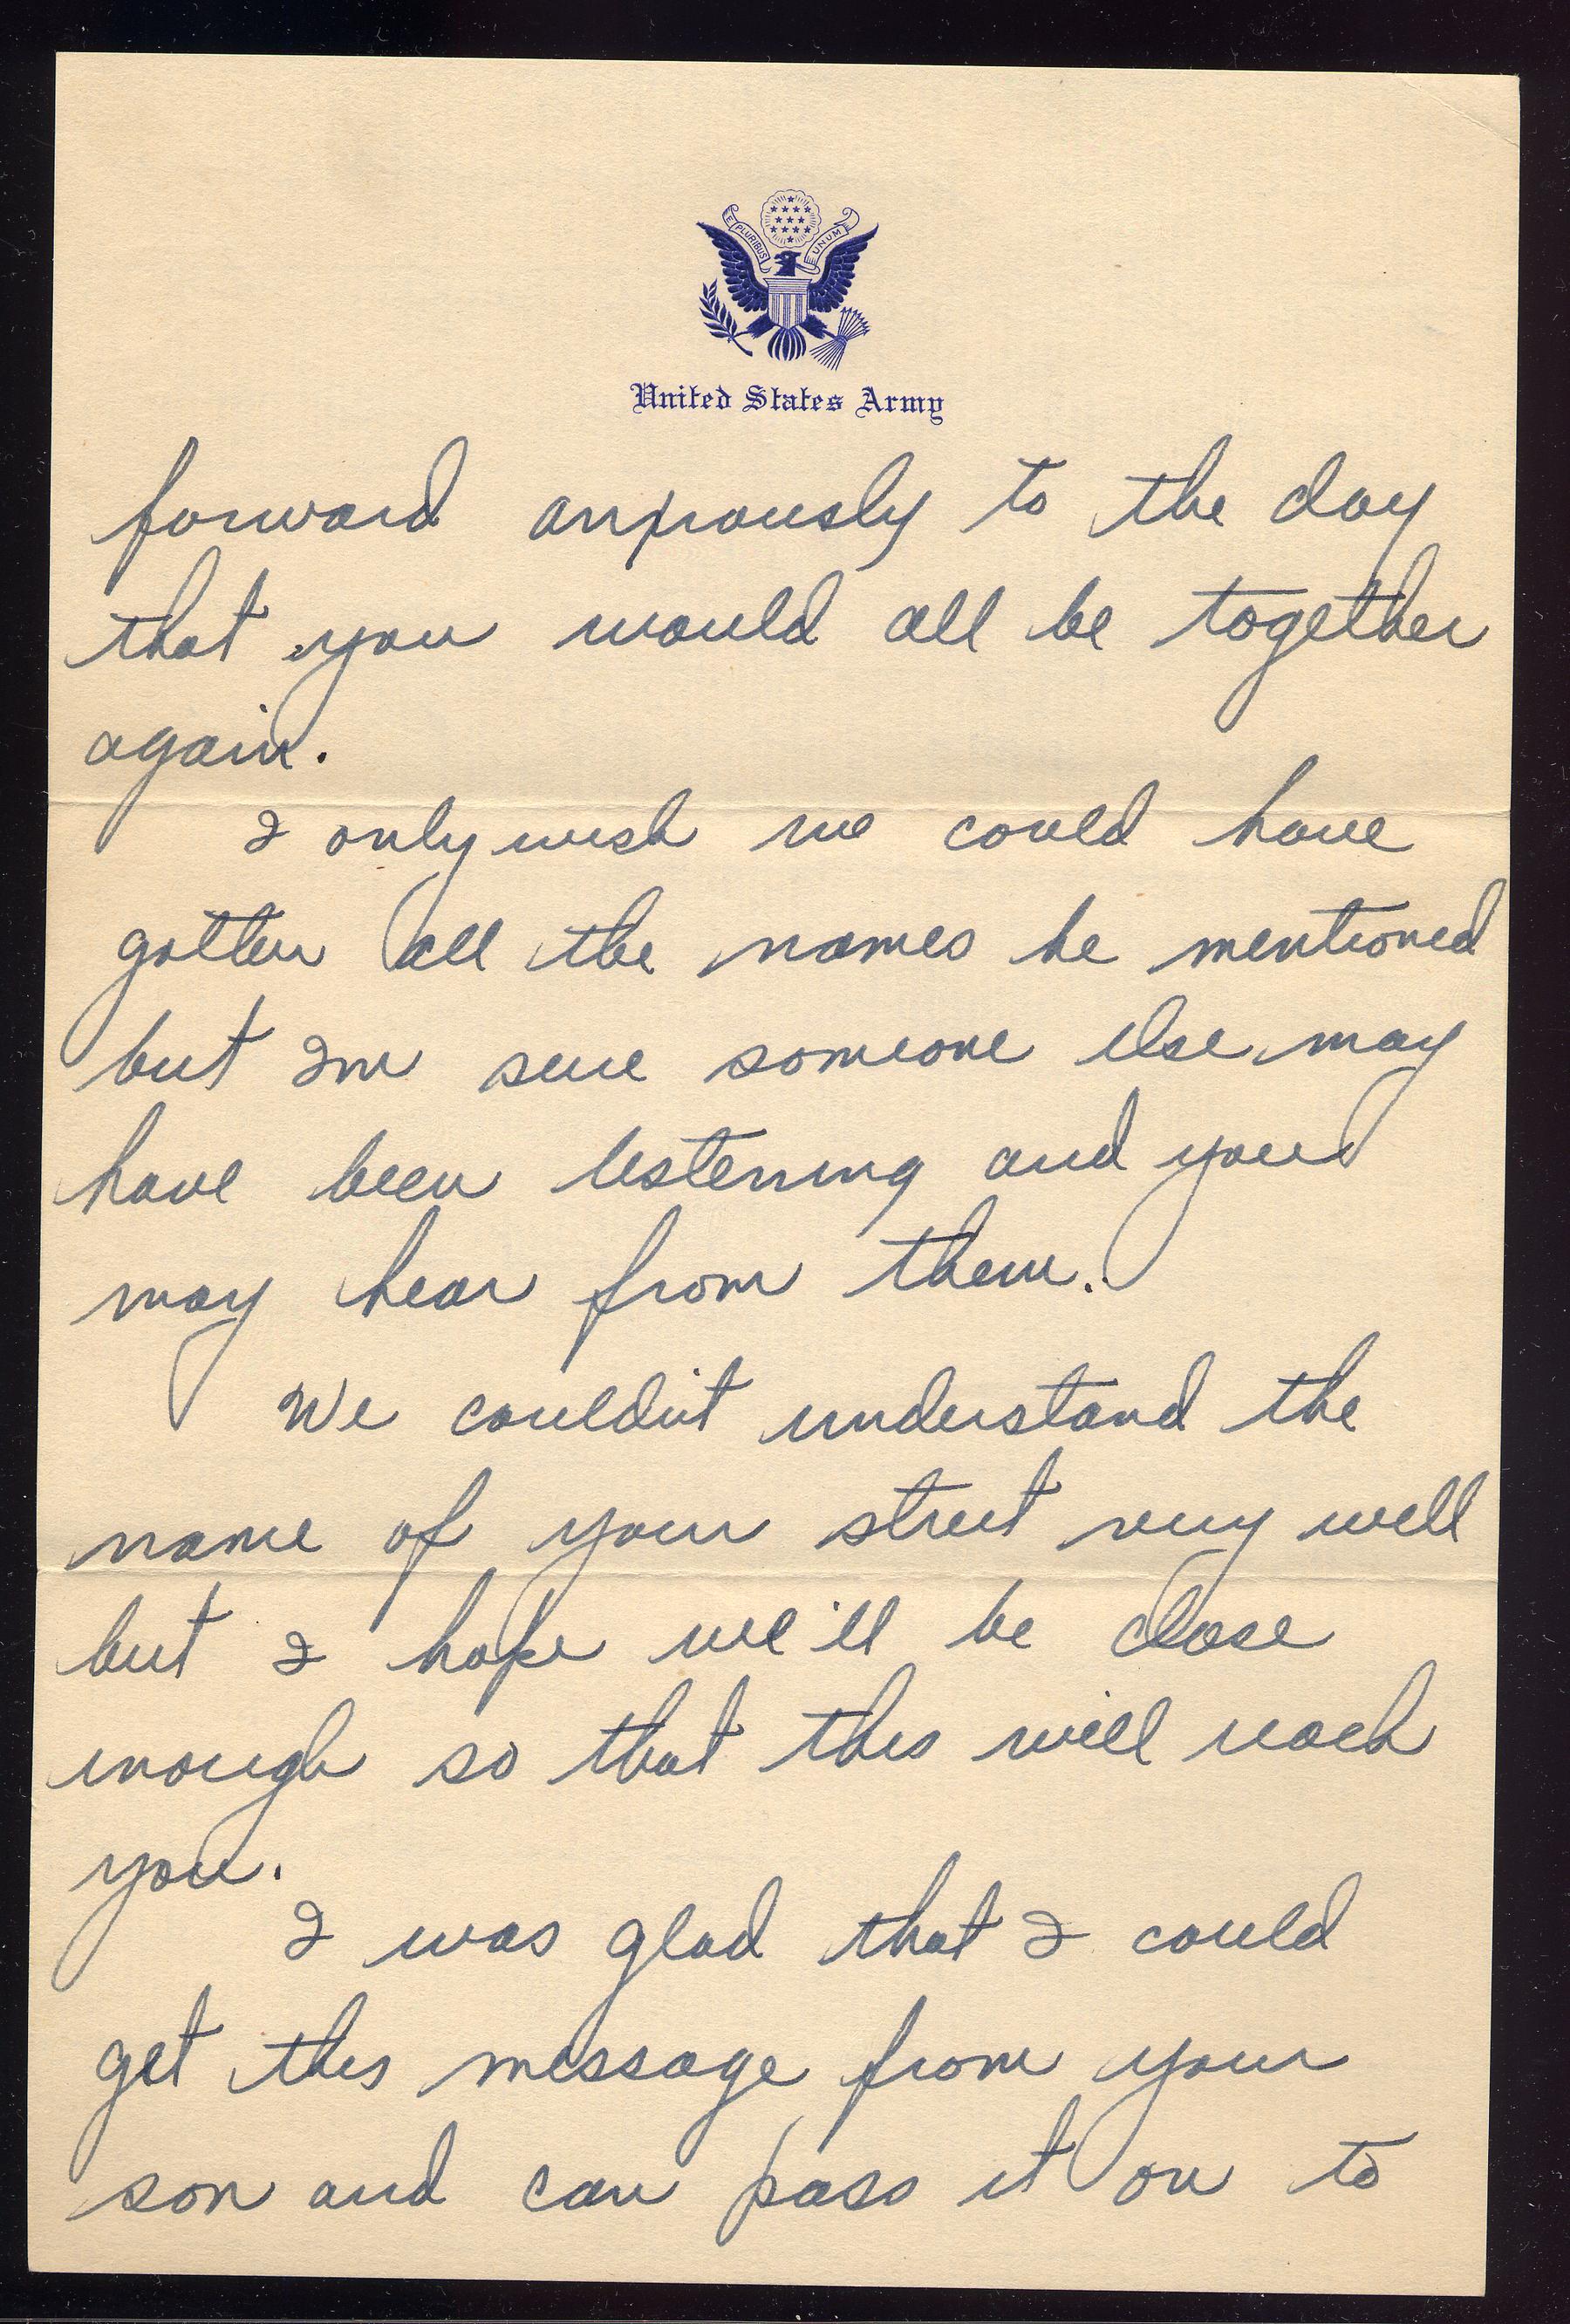 E PLURIBUS UNUM
United States Army
forward anxiously to the day
that you would all be together
again.
I only wish we could have
gotten all the names he mentioned
but Im sure someone else may
have been listening and you
may hear from them.
We couldn't understand the
name of your street very well
but I hope we'll be close
enough so that this will reach
you.
I was glad that I could
get this message from your
son and can pass it on to